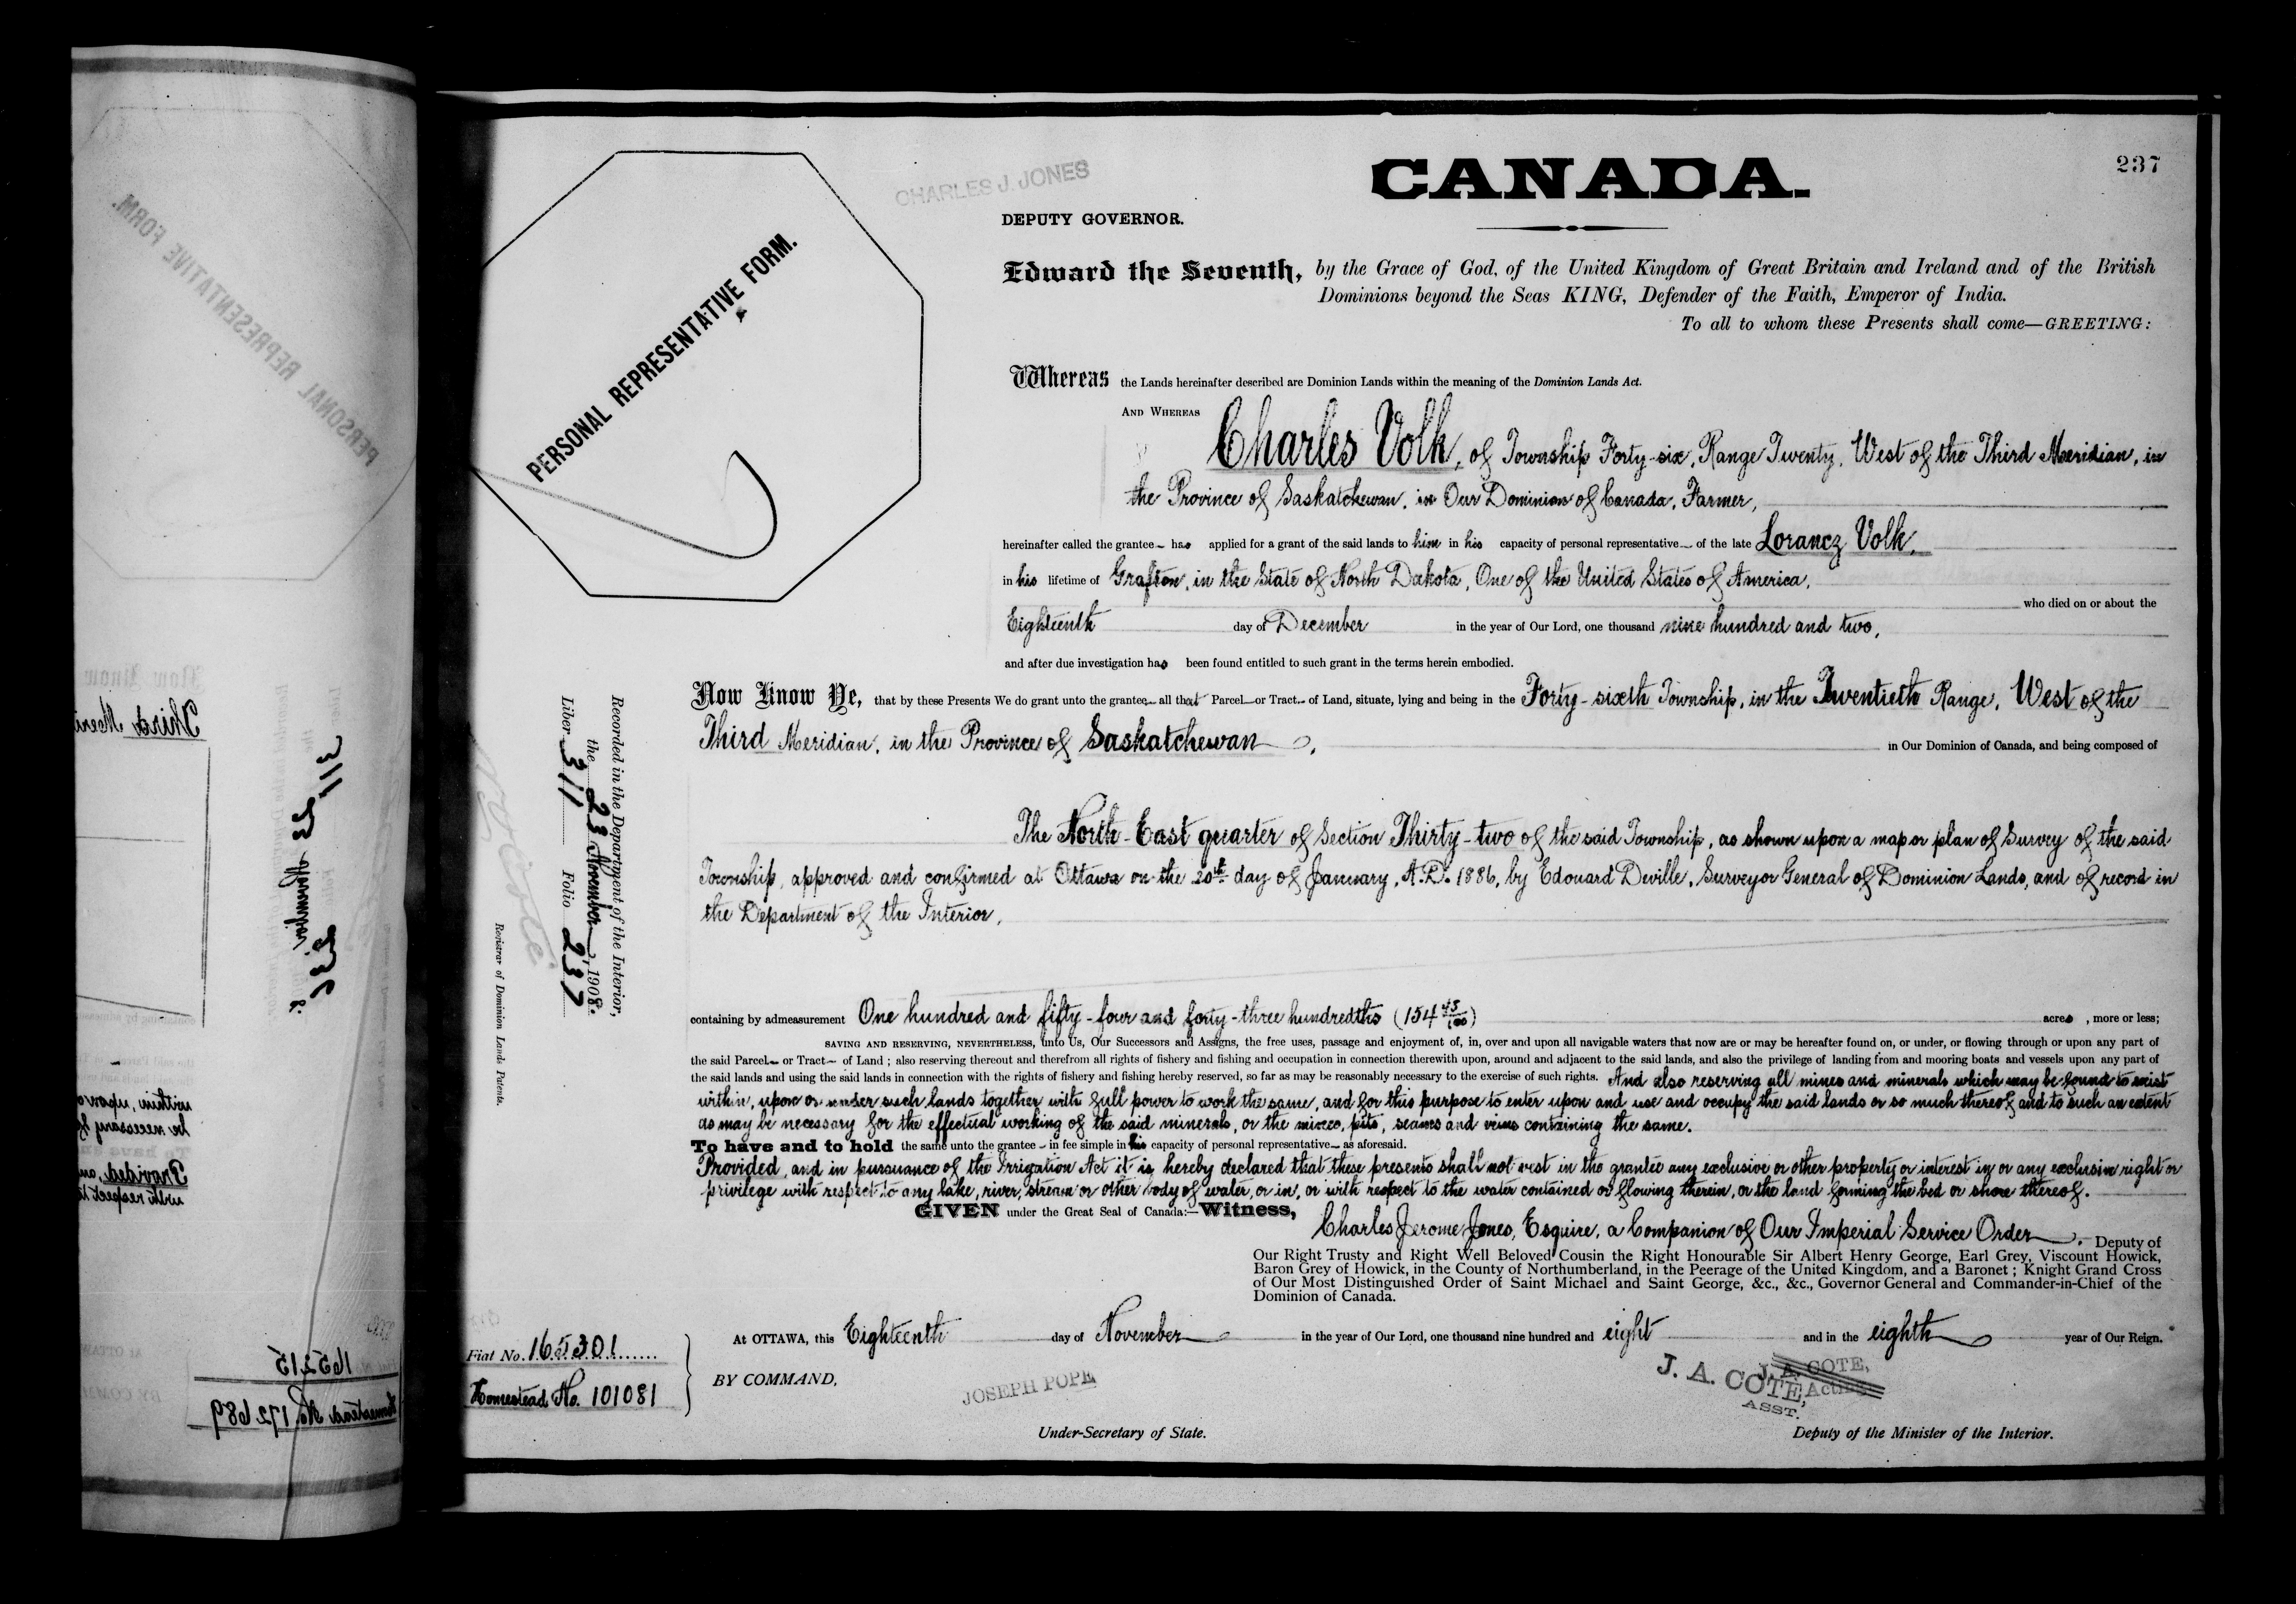 237
CHARLES J. JONES
CANADA.
DEPUTY GOVERNOR.
PERSONAL REPRESENTATIVE FORM.
Edward the Seventh, by the Grace of God, of the United Kingdom of Great Britain and Ireland and of the British
Dominions beyond the Seas KING, Defender of the Faith, Emperor of India.
To all to whom these Presents shall come—GREETING:
Whereas the Lands hereinafter described are Dominion Lands within the meaning of the Dominion Lands Act.
AND WHEREAS
Charles Volk, of Township Forty-six, Range Twenty, West of the Third Meridian, in
the Province of Saskatchewan, in Our Dominion of Canada, Farmer,
hereinafter called the grantee has applied for a grant of the said lands to him in his capacity of personal representative of the late Lorancz Volk,
in his lifetime of Grafton, in the State of North Dakota, One of the United States of America,
who died on or about the
Eighteenth day of December in the year of Our Lord, one thousand nine hundred and two,
and after due investigation has been found entitled to such grant in the terms herein embodied.
Now Know Ye, that by these Presents We do grant unto the grantee all that Parcel or Tract of Land, situate, lying and being in the Forty-sixth Township, in the Twentieth Range, West of the
Third Meridian, in the Province of Saskatchewan, in Our Dominion of Canada, and being composed of
The North-East quarter of Section Thirty-two of the said Township, as shown upon a map or plan of Survey of the said
Township, approved and confirmed at Ottawa on the 20th day of January, A.D. 1886, by Edouard Deville, Surveyor General of Dominion Lands, and of record in
the Department of the Interior,
containing by admeasurement One hundred and fifty-four and forty-three hundredths (154 43/100) acres, more or less;
SAVING AND RESERVING, NEVERTHELESS, unto Us, Our Successors and Assigns, the free uses, passage and enjoyment of, in, over and upon all navigable waters that now are or may be hereafter found on, or under, or flowing through or upon any part of
the said Parcel or Tract of Land; also reserving thereout and therefrom all rights of fishery and fishing and occupation in connection therewith upon, around and adjacent to the said lands, and also the privilege of landing from and mooring boats and vessels upon any part of
the said lands and using the said lands in connection with the rights of fishery and fishing hereby reserved, so far as may be reasonably necessary to the exercise of such rights. And also reserving all mines and minerals which may be found to exist
within, upon or under such lands together with full power to work the same, and for this purpose to enter upon and use and occupy the said lands or so much thereof and to such an extent
as may be necessary for the effectual working of the said minerals, or the mines, pits, seams and veins containing the same.
To have and to hold the same unto the grantee in fee simple in his capacity of personal representative as aforesaid.
Provided, and in pursuance of the Irrigation Act it is hereby declared that these presents shall not vest in the grantee any exclusive or other property or interest in or any exclusive right or
privilege with respect to any lake, river, stream or other body of water, or in, or with respect to the water contained or flowing therein, or the land forming the bed or shore thereof.
GIVEN under the Great Seal of Canada:—Witness,
Charles Jerome Jones, Esquire, a Companion of Our Imperial Service Order, Deputy of
Our Right Trusty and Right Well Beloved Cousin the Right Honourable Sir Albert Henry George, Earl Grey, Viscount Howick,
Baron Grey of Howick, in the County of Northumberland, in the Peerage of the United Kingdom, and a Baronet; Knight Grand Cross
of Our Most Distinguished Order of Saint Michael and Saint George, &c., &c., Governor General and Commander-in-Chief of the
Dominion of Canada.
At OTTAWA, this Eighteenth day of November in the year of Our Lord, one thousand nine hundred and eight and in the eighth year of Our Reign.
BY COMMAND,
JOSEPH POPE
Under-Secretary of State.
J. A. COTE,
J. A. COTE,
Acting
ASST.
Deputy of the Minister of the Interior.
Fiat No. 165301
Homestead No. 101081
Recorded in the Department of the Interior,
the 23 November, 1908.
Liber 311 Folio 237
Registrar of Dominion Lands Patents.
PERSONAL REPRESENTATIVE FORM.
Now Know
Third Meri
311
23
November
236
within, upon o
be necessary f
To have an
Provided, an
with respect t
165215
Homestead No. 172689